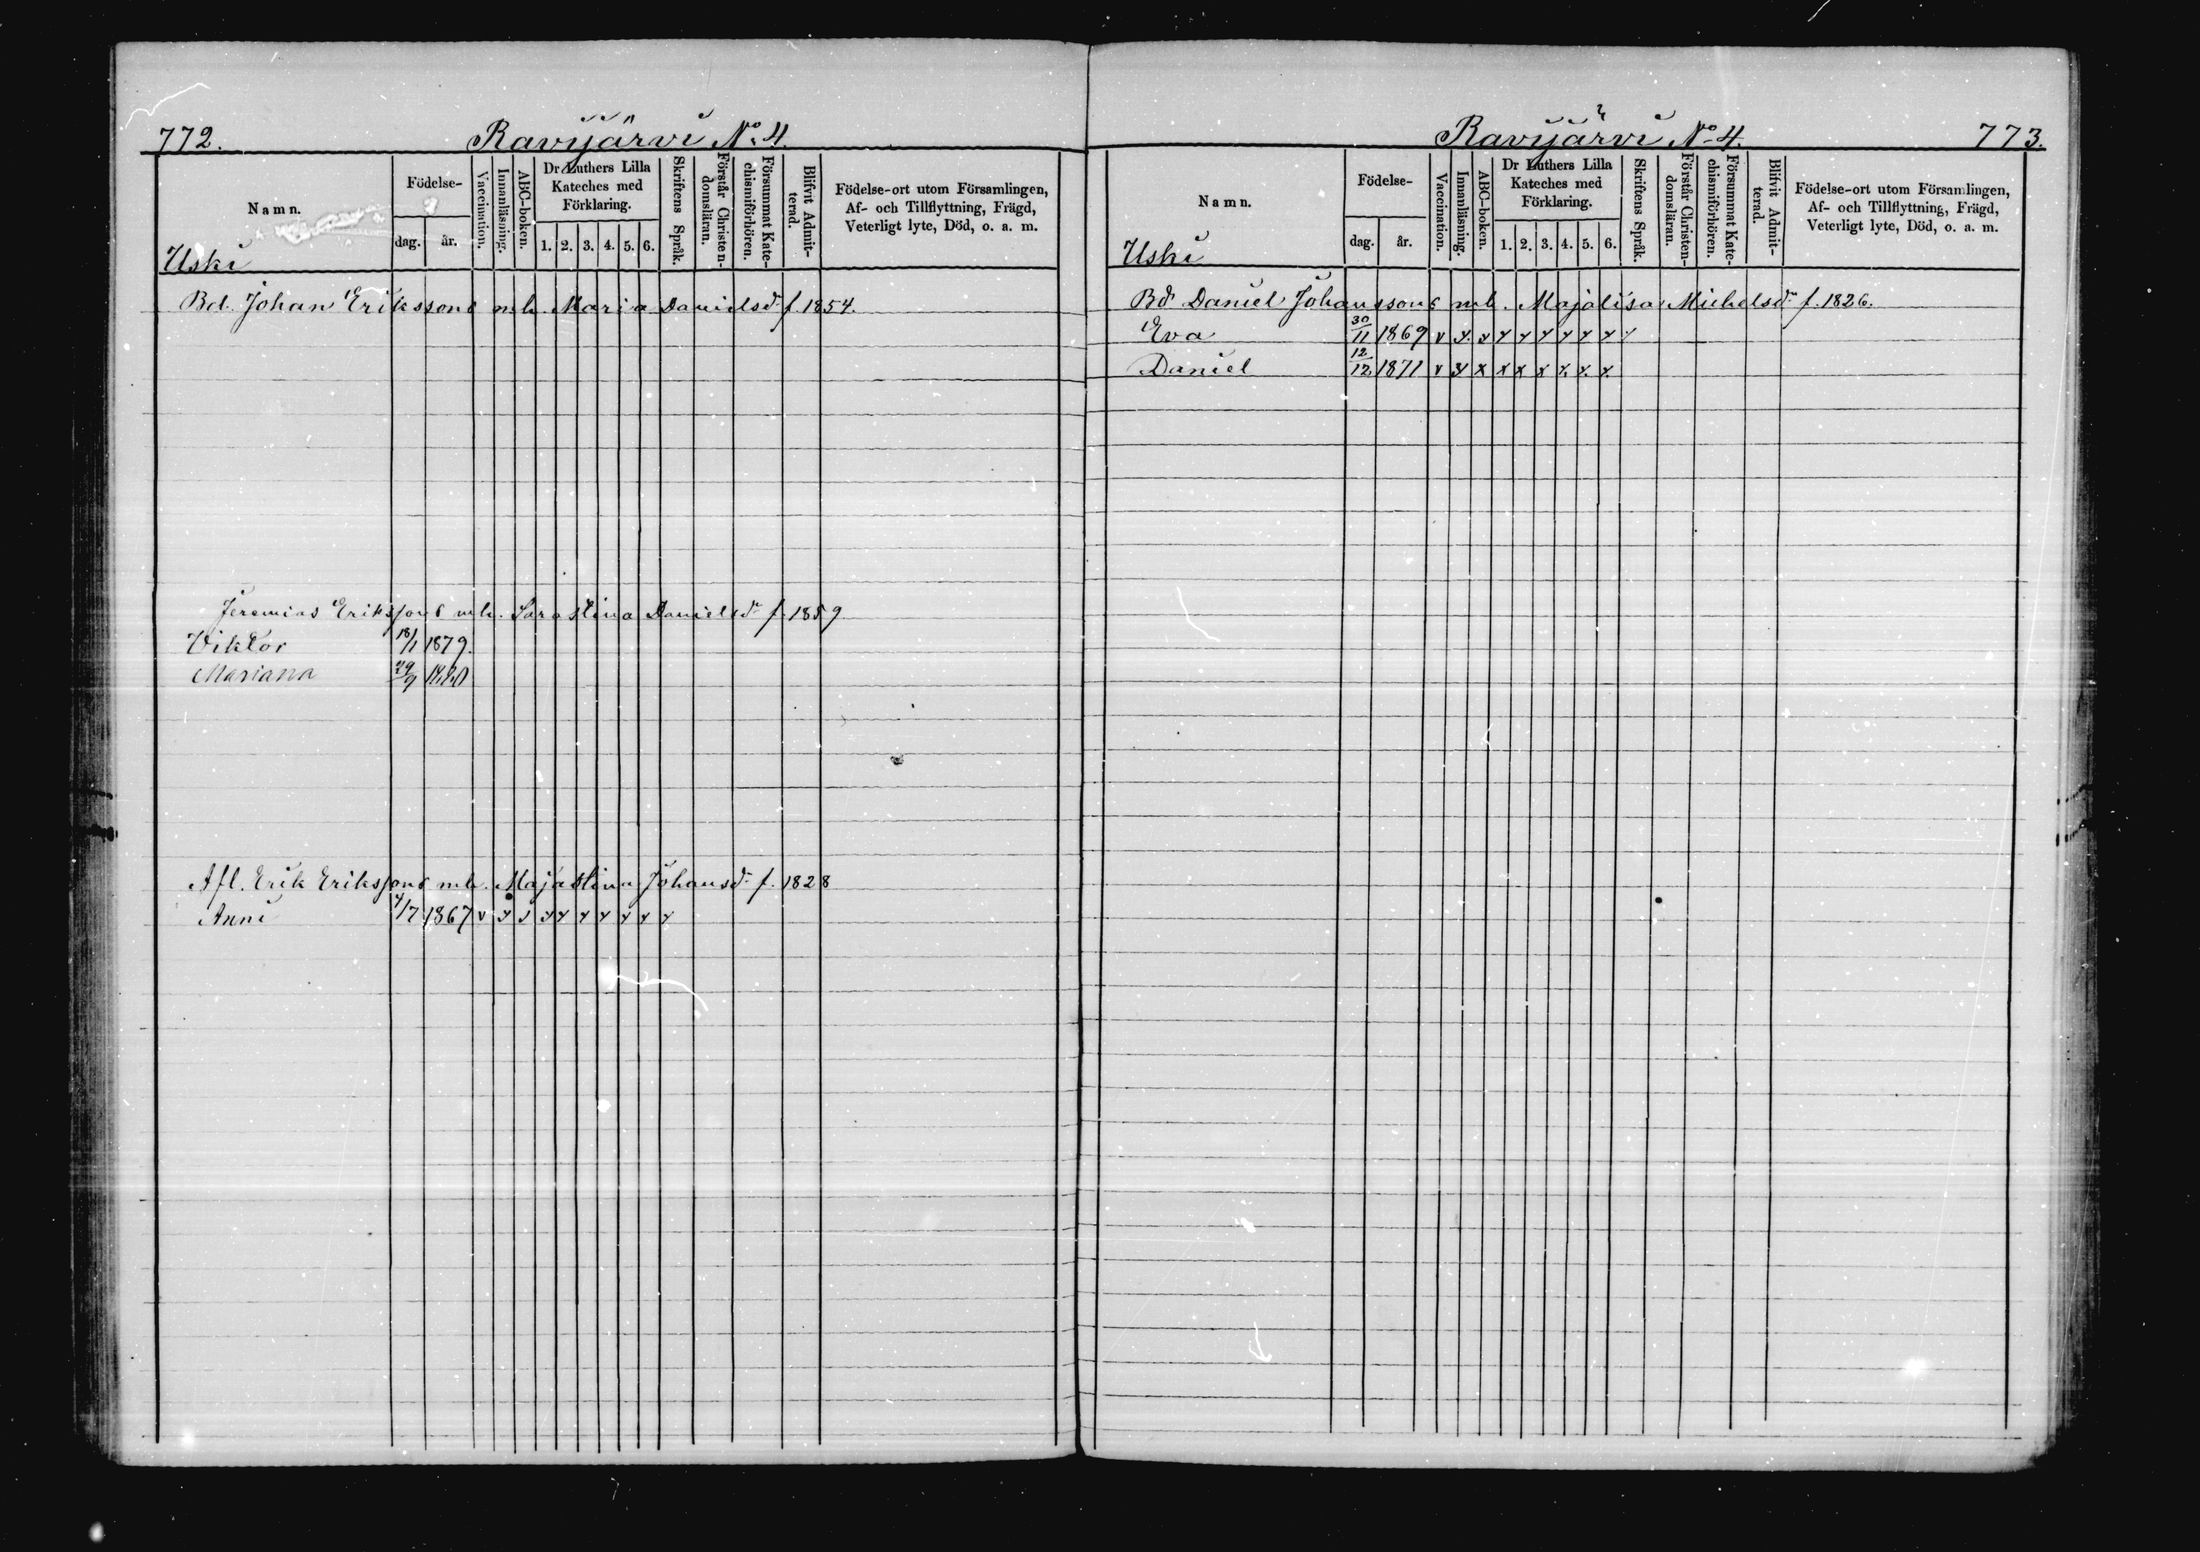 772. Ravijärvi No 4.
Namn.
Födelse-
dag. år.
Vaccination.
Innanläsning.
ABC-boken.
Dr Luthers Lilla
Kateches med
Förklaring.
1. 2. 3. 4. 5. 6.
Skriftens Språk.
Förstår Christen-
domsläran.
Försummat Kate-
chismiförhören.
Blifvit Admit-
terad.
Födelse-ort utom Församlingen,
Af- och Tillflyttning, Frägd,
Veterligt lyte, Död, o. a. m.
Uski
Bd. Johan Erikssons mh. Maria Danielsdr f. 1854.
Jeremias Erikssons mh. Sarastina Danielsdr f. 1859
Viktor 18/1 1879.
Mariana 29/9 1880
Afl. Erik Erikssons mh. Majastina Johansdr f. 1828
Anni 4/7 1867 v y y y y y y y y y
Ravijärvi No 4. 773.
Namn.
Födelse-
dag. år.
Vaccination.
Innanläsning.
ABC-boken.
Dr Luthers Lilla
Kateches med
Förklaring.
1. 2. 3. 4. 5. 6.
Skriftens Språk.
Förstår Christen-
domsläran.
Försummat Kate-
chismiförhören.
Blifvit Admit-
terad.
Födelse-ort utom Församlingen,
Af- och Tillflyttning, Frägd,
Veterligt lyte, Död, o. a. m.
Uski
Bdr Daniel Johanssons mh. Majalisa Michelsdr f. 1826.
Eva 30/11 1869 v y y y y y y y y y
Daniel 12/12 1871 v y x x x x x x x